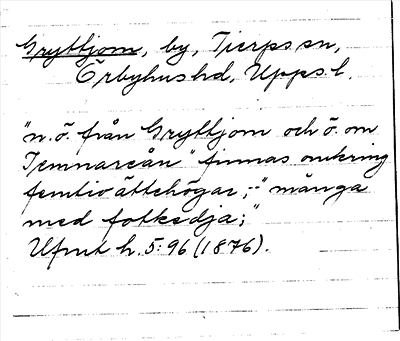 Gryttjom, by, Tierps sn,
Örbyhus hd, Upps. l.
"n. ö. från Gryttjom och ö. om
Temnareån" finnas omkring
femtio ättehögar, -"många
med fotkedja;"
Ufmt h. 5: 96 (1876).